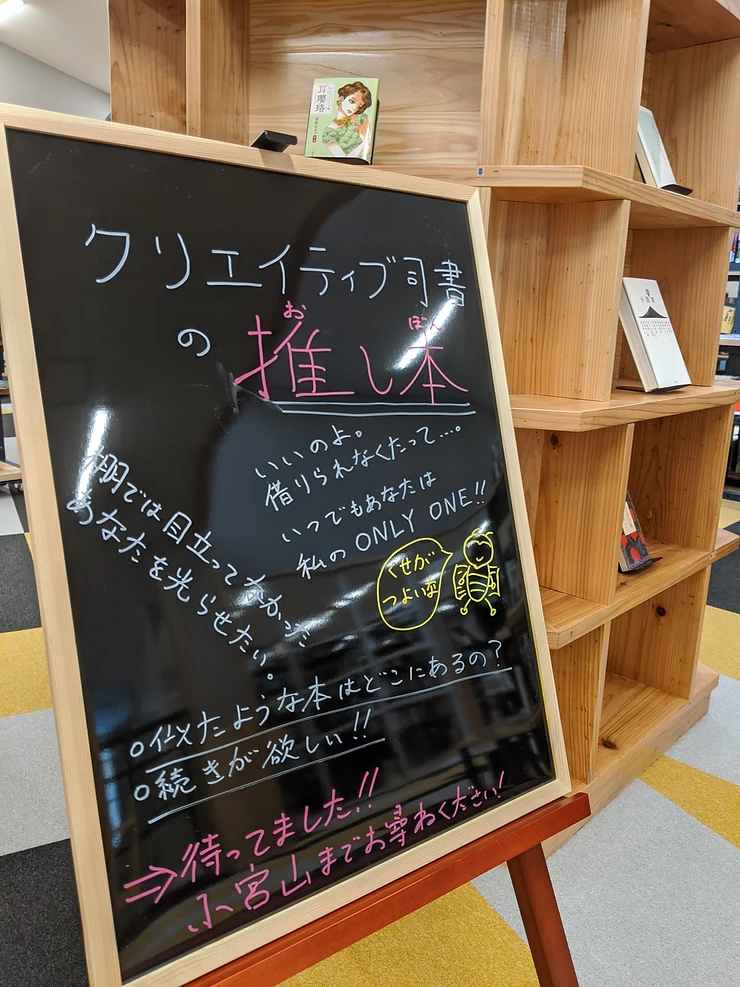 耳瓔珞
クリエイティブ司書
の推し本
お
ぼん
いいのよ。
借りられなくたって…。
いつでもあなたは
私の ONLY ONE!!
棚では目立ってなかった
あなたを光らせたい。
くせが
つよい
○似たような本はどこにあるの?
○続きが欲しい!!
⇒待ってました!!
小宮山までお尋ねください!